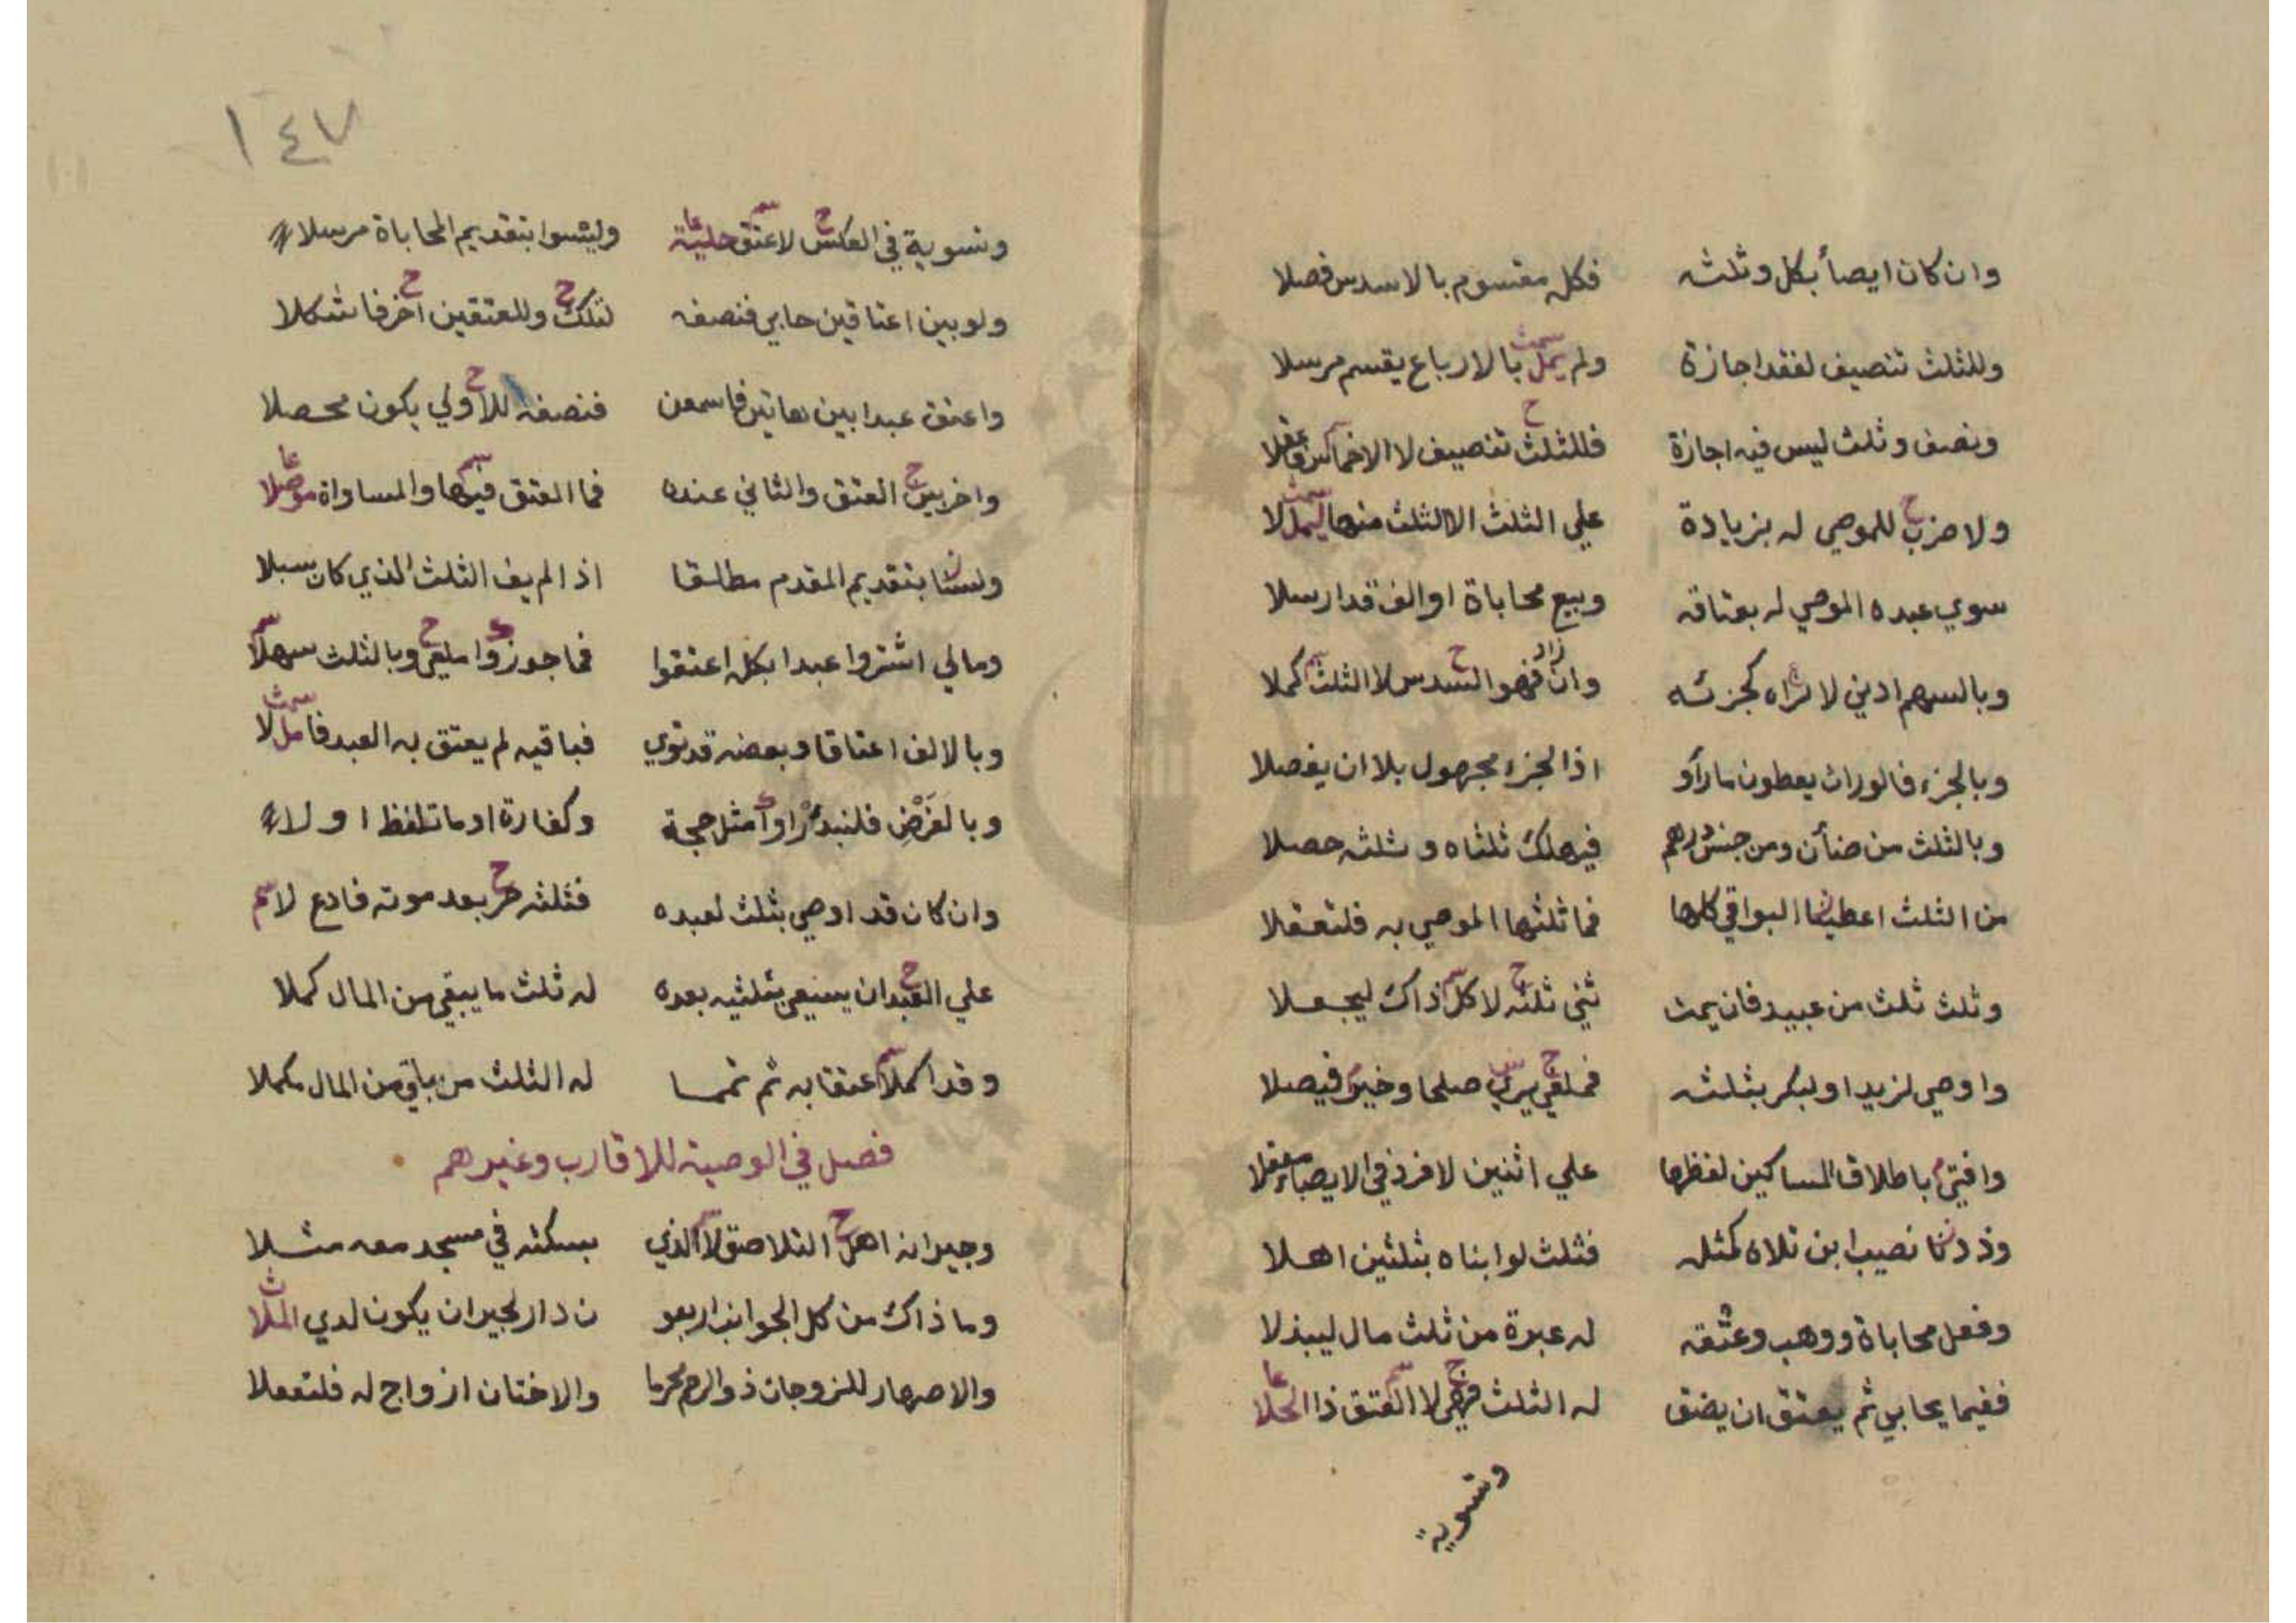 وان كان ايصأ بكل وثلثه فكله مقسوم بالاسدس فصلا
وللثلث تنصيف لفقد اجازة ولم يمل بالارباع يقسم مرسلا
ونصف وثلث ليس فيه اجازة فللثلث تنصيف لا الاخماس
ولا ضرب للموصي له بزيادة علي الثلث الا الثلث منها
سوي عبده الموصي له بعتاقه وبيع محاباة او الف قد ارسلا
وبالسهم ادني لا تراه كجزئه وان زاد فهو السدس لا الثلث كملا
وبالجزء فالوراث يعطون ما رأو اذ الجزء مجهول بلا ان يفصلا
وبالثلث من ضأن ومن جنس درهم فيهلك ثلثاه وثلثه حصلا
من الثلث اعطينا البواقي كلها فما ثلثها الموصي به فلتعقلا
وثلث ثلث من عبيد فان يمت ثني ثلثه لا كل ذاك ليجعلا
واوصي لزيد او لبكر بثلثه فملغي يري صلحا وخير فيصلا
وافتي باطلاق المساكين لفظها علي اثنين لا فرد في الايصاء
وذدنا نصيب ابن تلاه كمثله فثلث لو ابناه بثلثين اهلا
وفعل محاباة ووهب وعتقه له عبرة من ثلث مال ليبذلا
ففيما يحابي ثم يعتق ان يضق له الثلث فهي لا العتق ذا الحلا
وتسوية
١٤٧
وتسوية في العكس لا عتق وليسوا بتقديم المحاباة مرسلا
ولو بين اعتاقين حابي فنصفه لتلك وللعتقين اخر فاشكلا
واعتق عبدا بين هاتين فاسمعن فنصفه للاولي يكون محصلا
واخر بين العتق والثاني عنده فما العتق فيها والمساواة
ولسنا بتقديم المقدم مطلقا اذا لم يف الثلث الذي كان سبلا
ومالي اشتروا عبدا بكله اعتقوا فما جوزوا ملغي وبالثلث سهلا
وبالالف اعتاقا وبعضه قد توي فباقيه لم يعتق به العبد فاملا
وبالفرض فلنبدئ مثل حجة وكفارة او ما تلفظ اولا
وان كان قد اوصي بثلث لعبده فثلثه حر بعد موته فادع لا
علي العبد ان يسعي بثلثيه بعده له ثلث ما يبقي من المال كملا
وقد اكملا عتقا به ثم تمما له الثلث من باقي من المال مكملا
فصل في الوصية للاقارب وغيرهم
وجيرانه اهل التلاصق لا الذي بسكنه في مسجد معه مثلا
وما ذاك من كل الجوانب اربعو ن دار لجيران يكون لدي الملا
والاصهار للزوجات ذو الرحم محرما والاختان ازواج له فلتعقلا